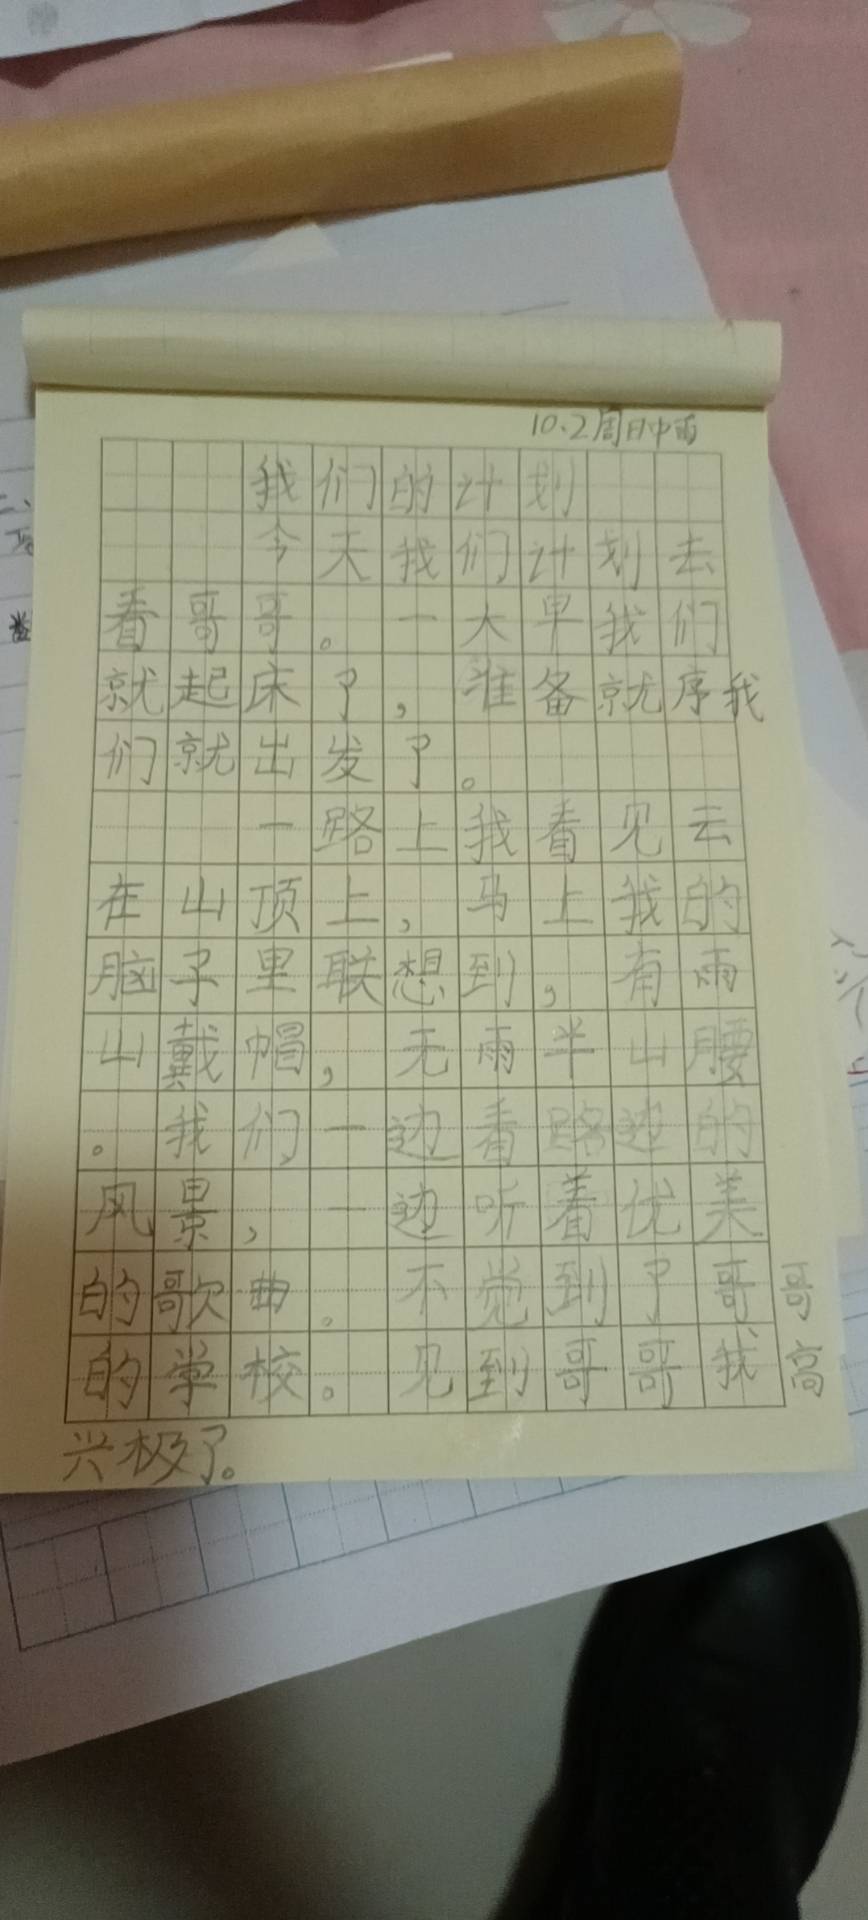 10.2周日中雨
我们的计划
今天我们计划去
看哥哥。一大早我们
就起床了,准备就序我
们就出发了。
一路上我看见云
在山顶上,马上我的
脑子里联想到,有雨
山戴帽,无雨半山腰
。我们一边看路边的
风景,一边听着优美
的歌曲。不觉到了哥哥
的学校。见到哥哥我高
兴极了。